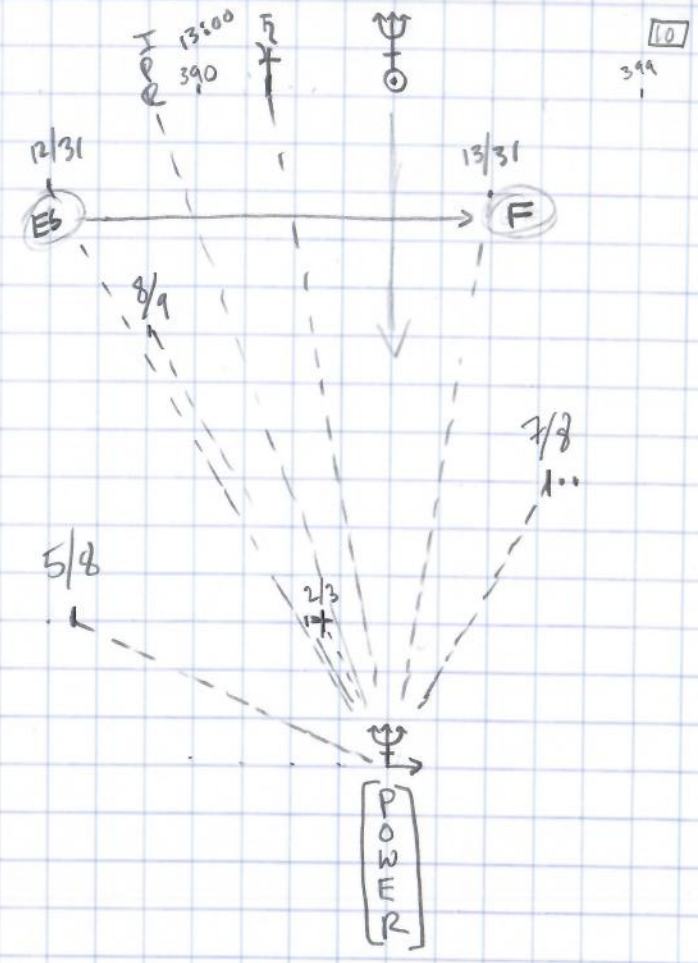 10
390
399
12/31
13/31
Es
F
8/9
7/8
5/8
2/3
POWER